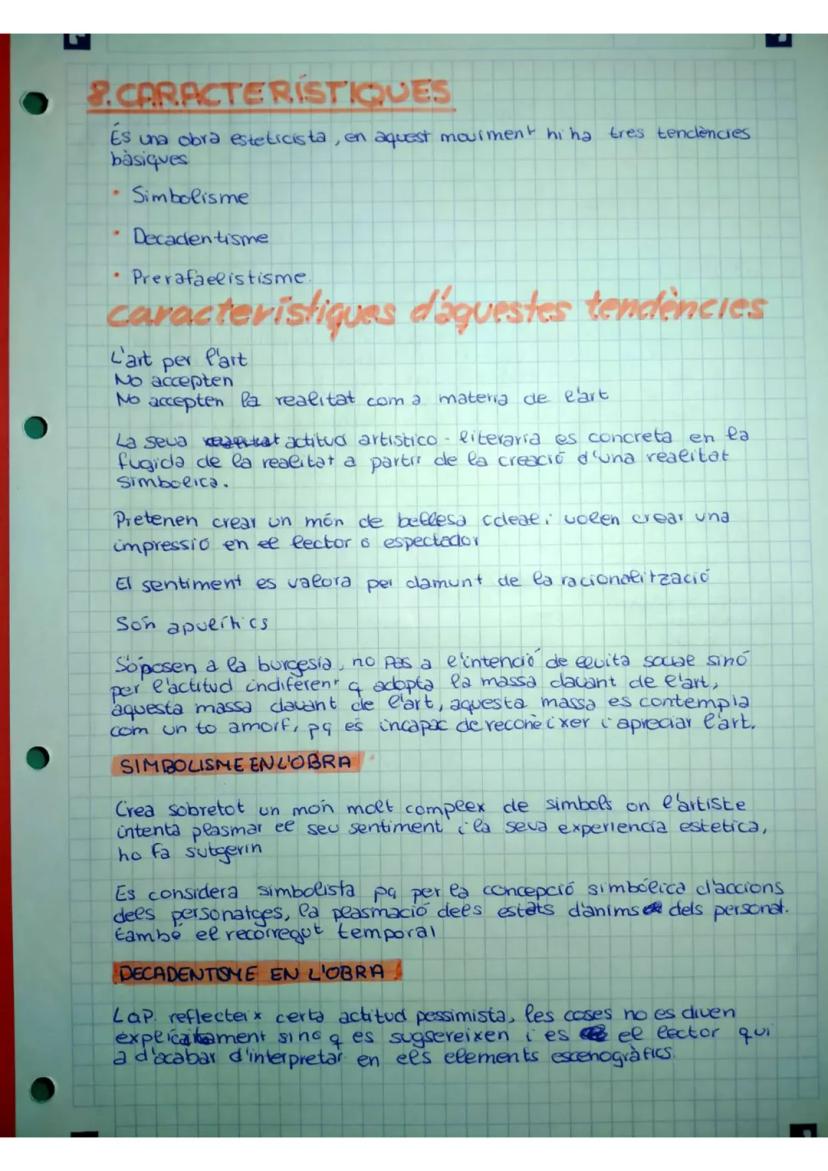 8. CARACTERÍSTIQUES
És una obra esteticista, en aquest moviment hi ha tres tendències
bàsiques
• Simbolisme
• Decadentisme
• Prerafaelistisme.
característiques d'aquestes tendències
L'art per l'art
No accepten
No accepten la realitat com a materia de l'art
La seva actitud artistico-literaria es concreta en la
fugida de la realitat a partir de la creació d'una realitat
simbolica.
Pretenen crear un món de bellesa ideal i volen crear una
impressió en el lector o espectador
El sentiment es valora per damunt de la racionalització
Són apolítics
S'oposen a la burgesia, no pas a l'intenció de lluita social sinó
per l'actitud indiferent q adopta la massa davant de l'art,
aquesta massa davant de l'art, aquesta massa es contempla
com un to amorf, pq és incapaç de reconèixer i apreciar l'art.
SIMBOLISME EN L'OBRA
Crea sobretot un món molt complex de simbols on l'artiste
intenta plasmar el seu sentiment i la seva experiencia estetica,
ho fa sutgerin
Es considera simbolista pq per la concepció simbólica d'accions
dels personatges, la plasmació dels estats d'anims dels personat.
també el recorregut temporal
DECADENTISME EN L'OBRA
LaP. reflecteix certa actitud pessimista, les coses no es diven
explicitament sino q es sugsereixen i es el lector qui
a d'acabar d'interpretar en els elements escenogràfics.